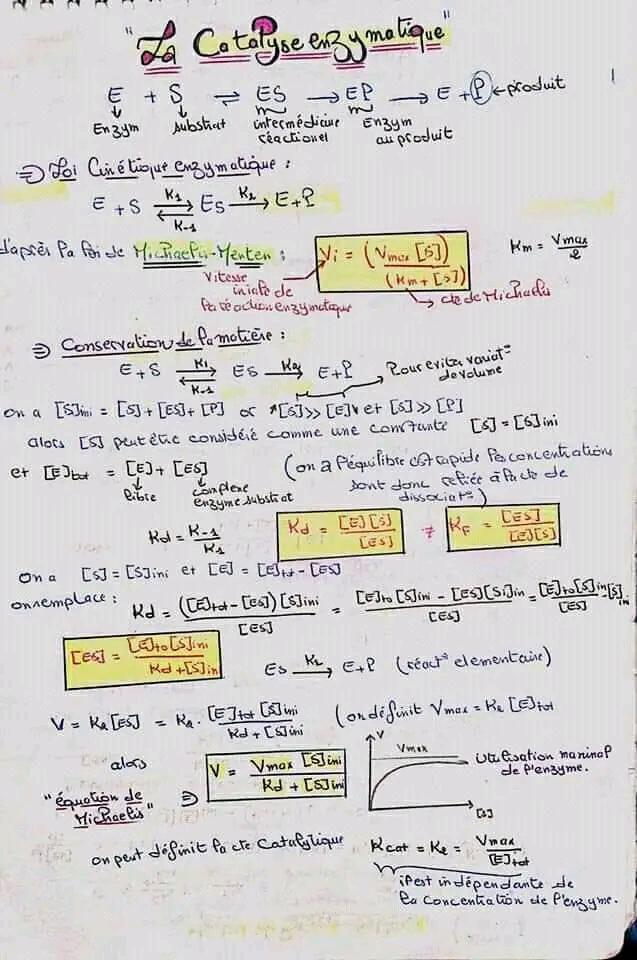 "La Catalyse enzymatique"
E + S ⇌ ES → EP → E + P ← produit
Enzym substrat intermédiaire réactionel Enzym au produit
1
⇒ Loi Cinétique enzymatique :
E + S ⇌ ES → E + P
K1 K-1 K2
d'après la loi de Michaelis-Menten : Vi = (Vmax [S]) / (Km + [S]) Km = Vmax/2
Vitesse iniale de la réaction enzymatique
cte de Michaelis
⇒ Conservation de la matière :
E + S ⇌ ES → E + P
K1 K-1 K2
Pour eviter variat° de volume
on a [S]ini = [S] + [ES] + [P] or "[S] >> [E]" et [S] >> [P]
alors [S] peut être considéré comme une constante [S] = [S]ini
et [E]tot = [E] + [ES] (on a l'équilibre est rapide les concentrations
libre complexe enzyme substrat
sont donc reliée à la cte de dissociat°)
Kd = K-1/K1 Kd = [E][S]/[ES] ≠ KF = [ES]/[E][S]
On a [S] = [S]ini et [E] = [E]tot - [ES]
on remplace : Kd = ([E]tot - [ES]) [S]ini / [ES] = [E]to [S]ini - [ES][S]ini / [ES] = [E]to [S]in / [ES] - [S]ini
[ES] = [E]to [S]ini / Kd + [S]in ES → E + P (réact° elementaire)
K2
V = K2 [ES] = K2 . [E]tot [S]ini / Kd + [S]ini (on définit Vmax = K2 [E]tot
alors V = Vmax [S]ini / Kd + [S]ini
"équation de Michaelis" ⇒
V
Vmax
[S]
Utilisation maximal de l'enzyme.
on peut définit la cte Catalytique Kcat = K2 = Vmax / [E]tot
il est indépendante de
la concentration de l'enzyme.